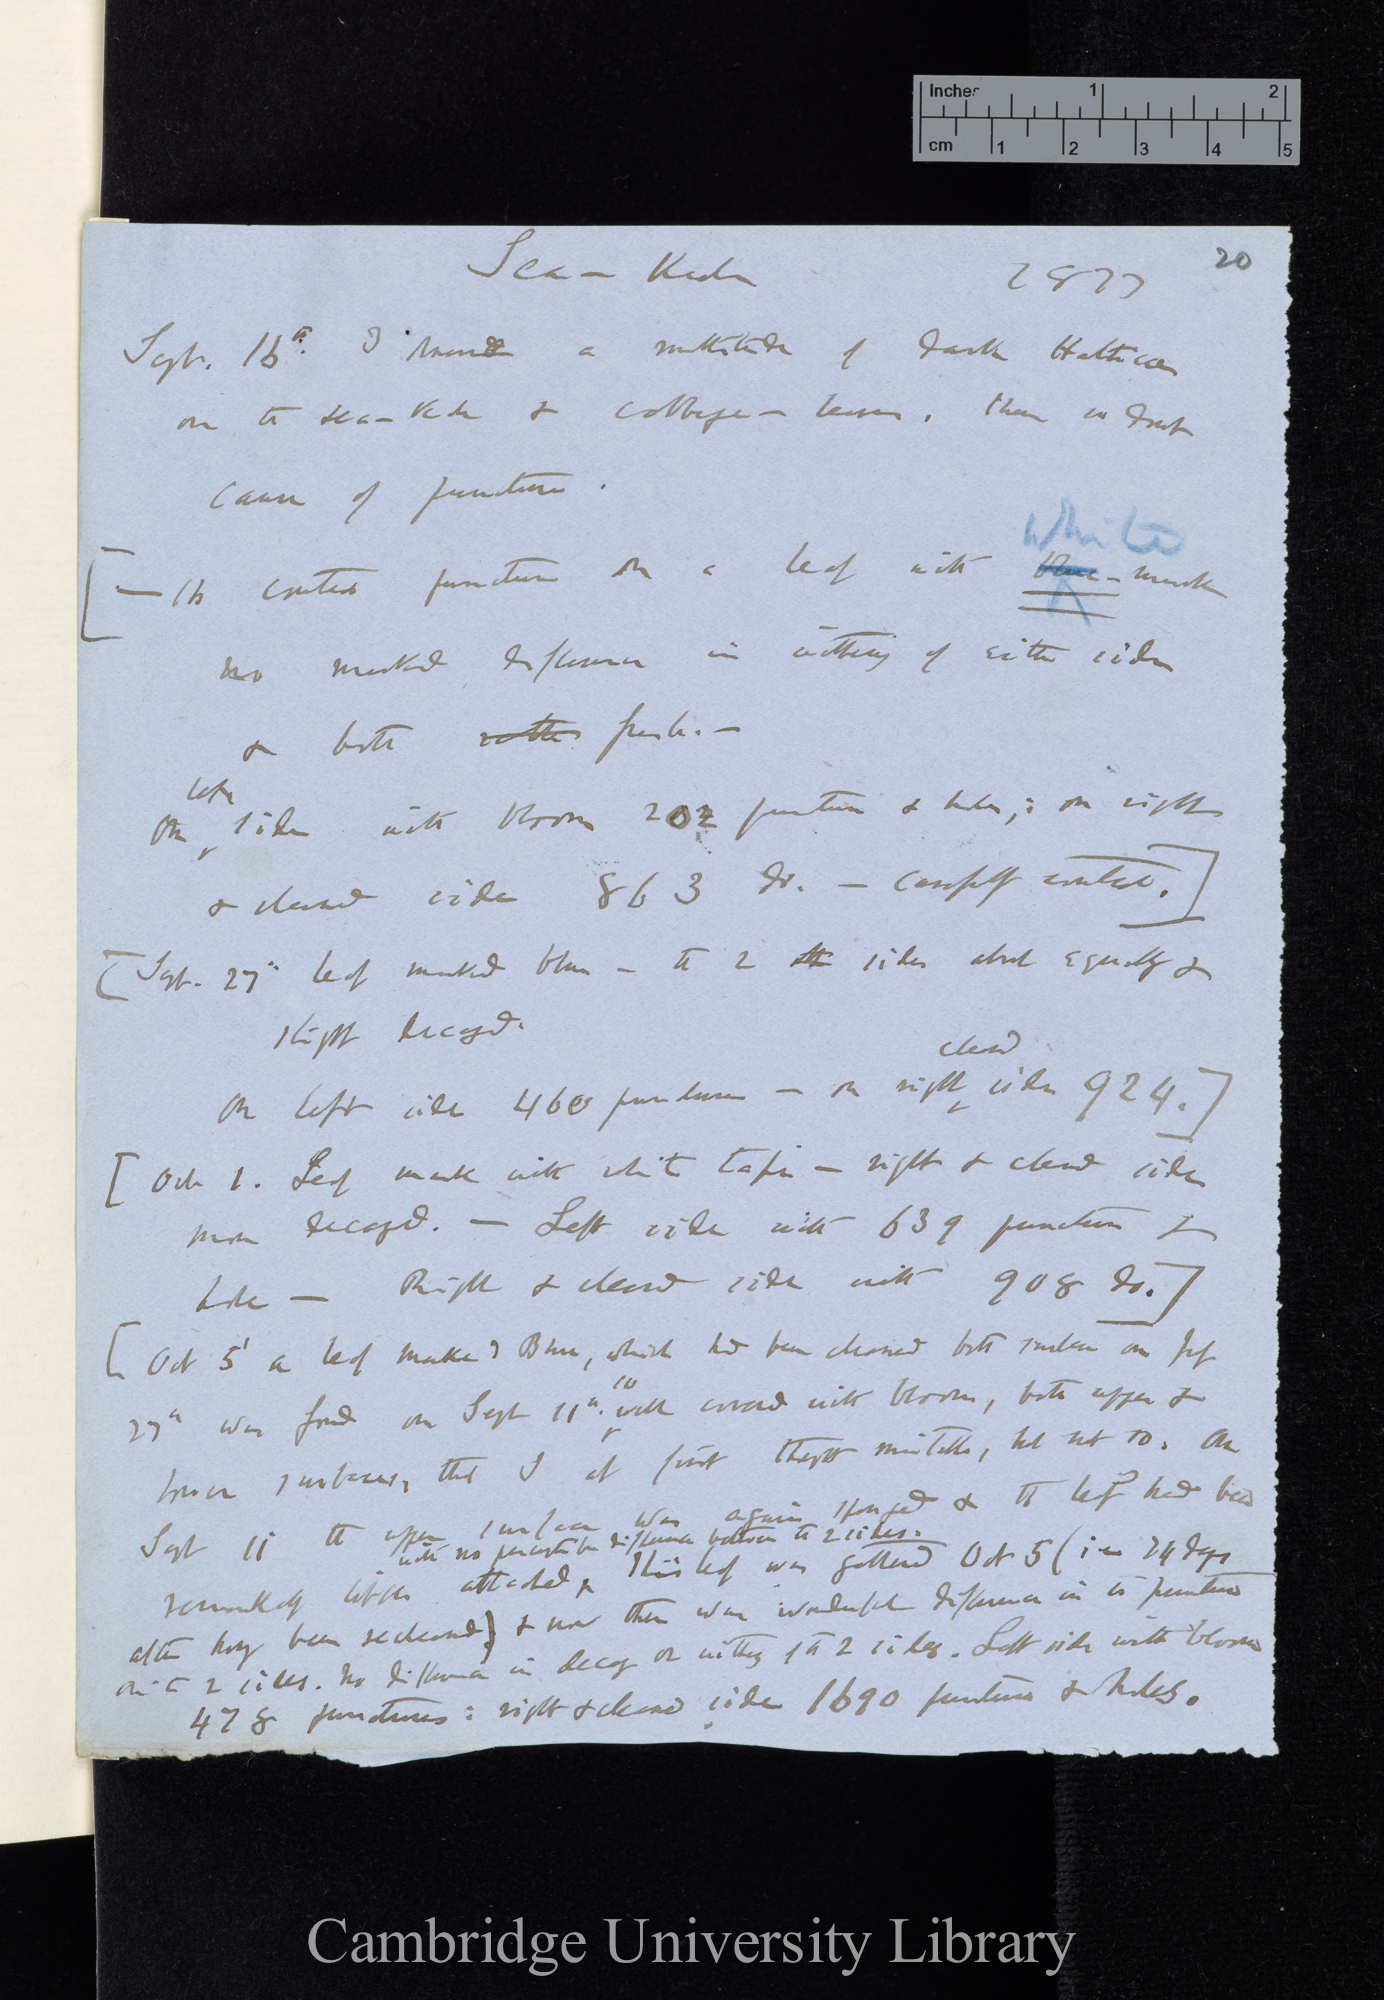 Inches 1 2
cm 1 2 3 4 5
20
Sea-Kale 1877
Sept. 16th. I a multitude of dark Halticas
on the sea-Kale & cabbage-leaves, these no doubt
cause of punctures.
[— 16 counted punctures on a leaf with blue-mark
White
no marked difference in withering of either side
& both rather fresh. —
left
On side with bloom 202 punctures & holes; : on right
& cleaned side 863 do. — carefully counted.]
[Sept. 27th leaf marked blue — the 2 sides about equally &
slightly decayed.
cleaned
On left side 460 punctures — on right side 924.]
[Oct 1. Leaf mark with white tape — right & cleaned side
more decayed. — Left side with 639 punctures &
hole — Right & cleaned side with 908 do.]
[Oct 5th a leaf marked Blue, which had been cleaned both surfaces on
27th was found on Sept 11th. so well covered with bloom, both upper &
lower surfaces, that I at first thought mistake, but not so. On
Sept 11 the upper surface was again sponged & the leaf had been
with no perceptible difference between the 2 sides.
remarkably attacked, This leaf was gathered Oct 5 (ie 24 days
after having been recleaned) & now there was wonderful difference in the punctures
on the 2 sides. No difference in decay or withering of the 2 sides. Left side with bloom
478 punctures: right & cleaned side 1690 punctures & holes.
Cambridge University Library